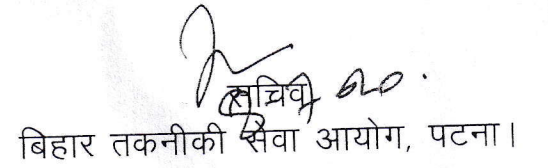 सचिव
बिहार तकनीकी सेवा आयोग, पटना।